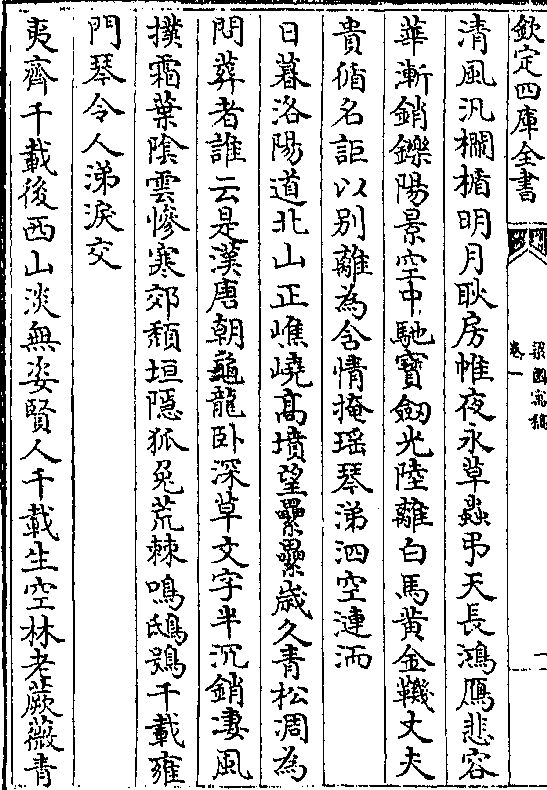 欽定四庫全書
梁園寓稿
卷一
一
清風汎欄楯明月耿房帷夜永草蟲弔天長鴻鴈悲容
華漸銷鑠陽景空中馳寶劔光陸離白馬黃金鞿丈夫
貴脩名詎以别離為含情掩瑶琴涕泗空漣洏
日暮洛陽道北山正嶕嶢髙墳望纍纍歲久青松凋為
問葬者誰云是漢唐朝龜龍卧深草文字半沉銷凄風
撲霜葉陰雲慘寒郊頽垣隱狐兔荒棘鳴鴟鴞千載雍
門琴令人涕淚交
夷齊千載後西山淡無姿賢人千載生空林老蕨薇青